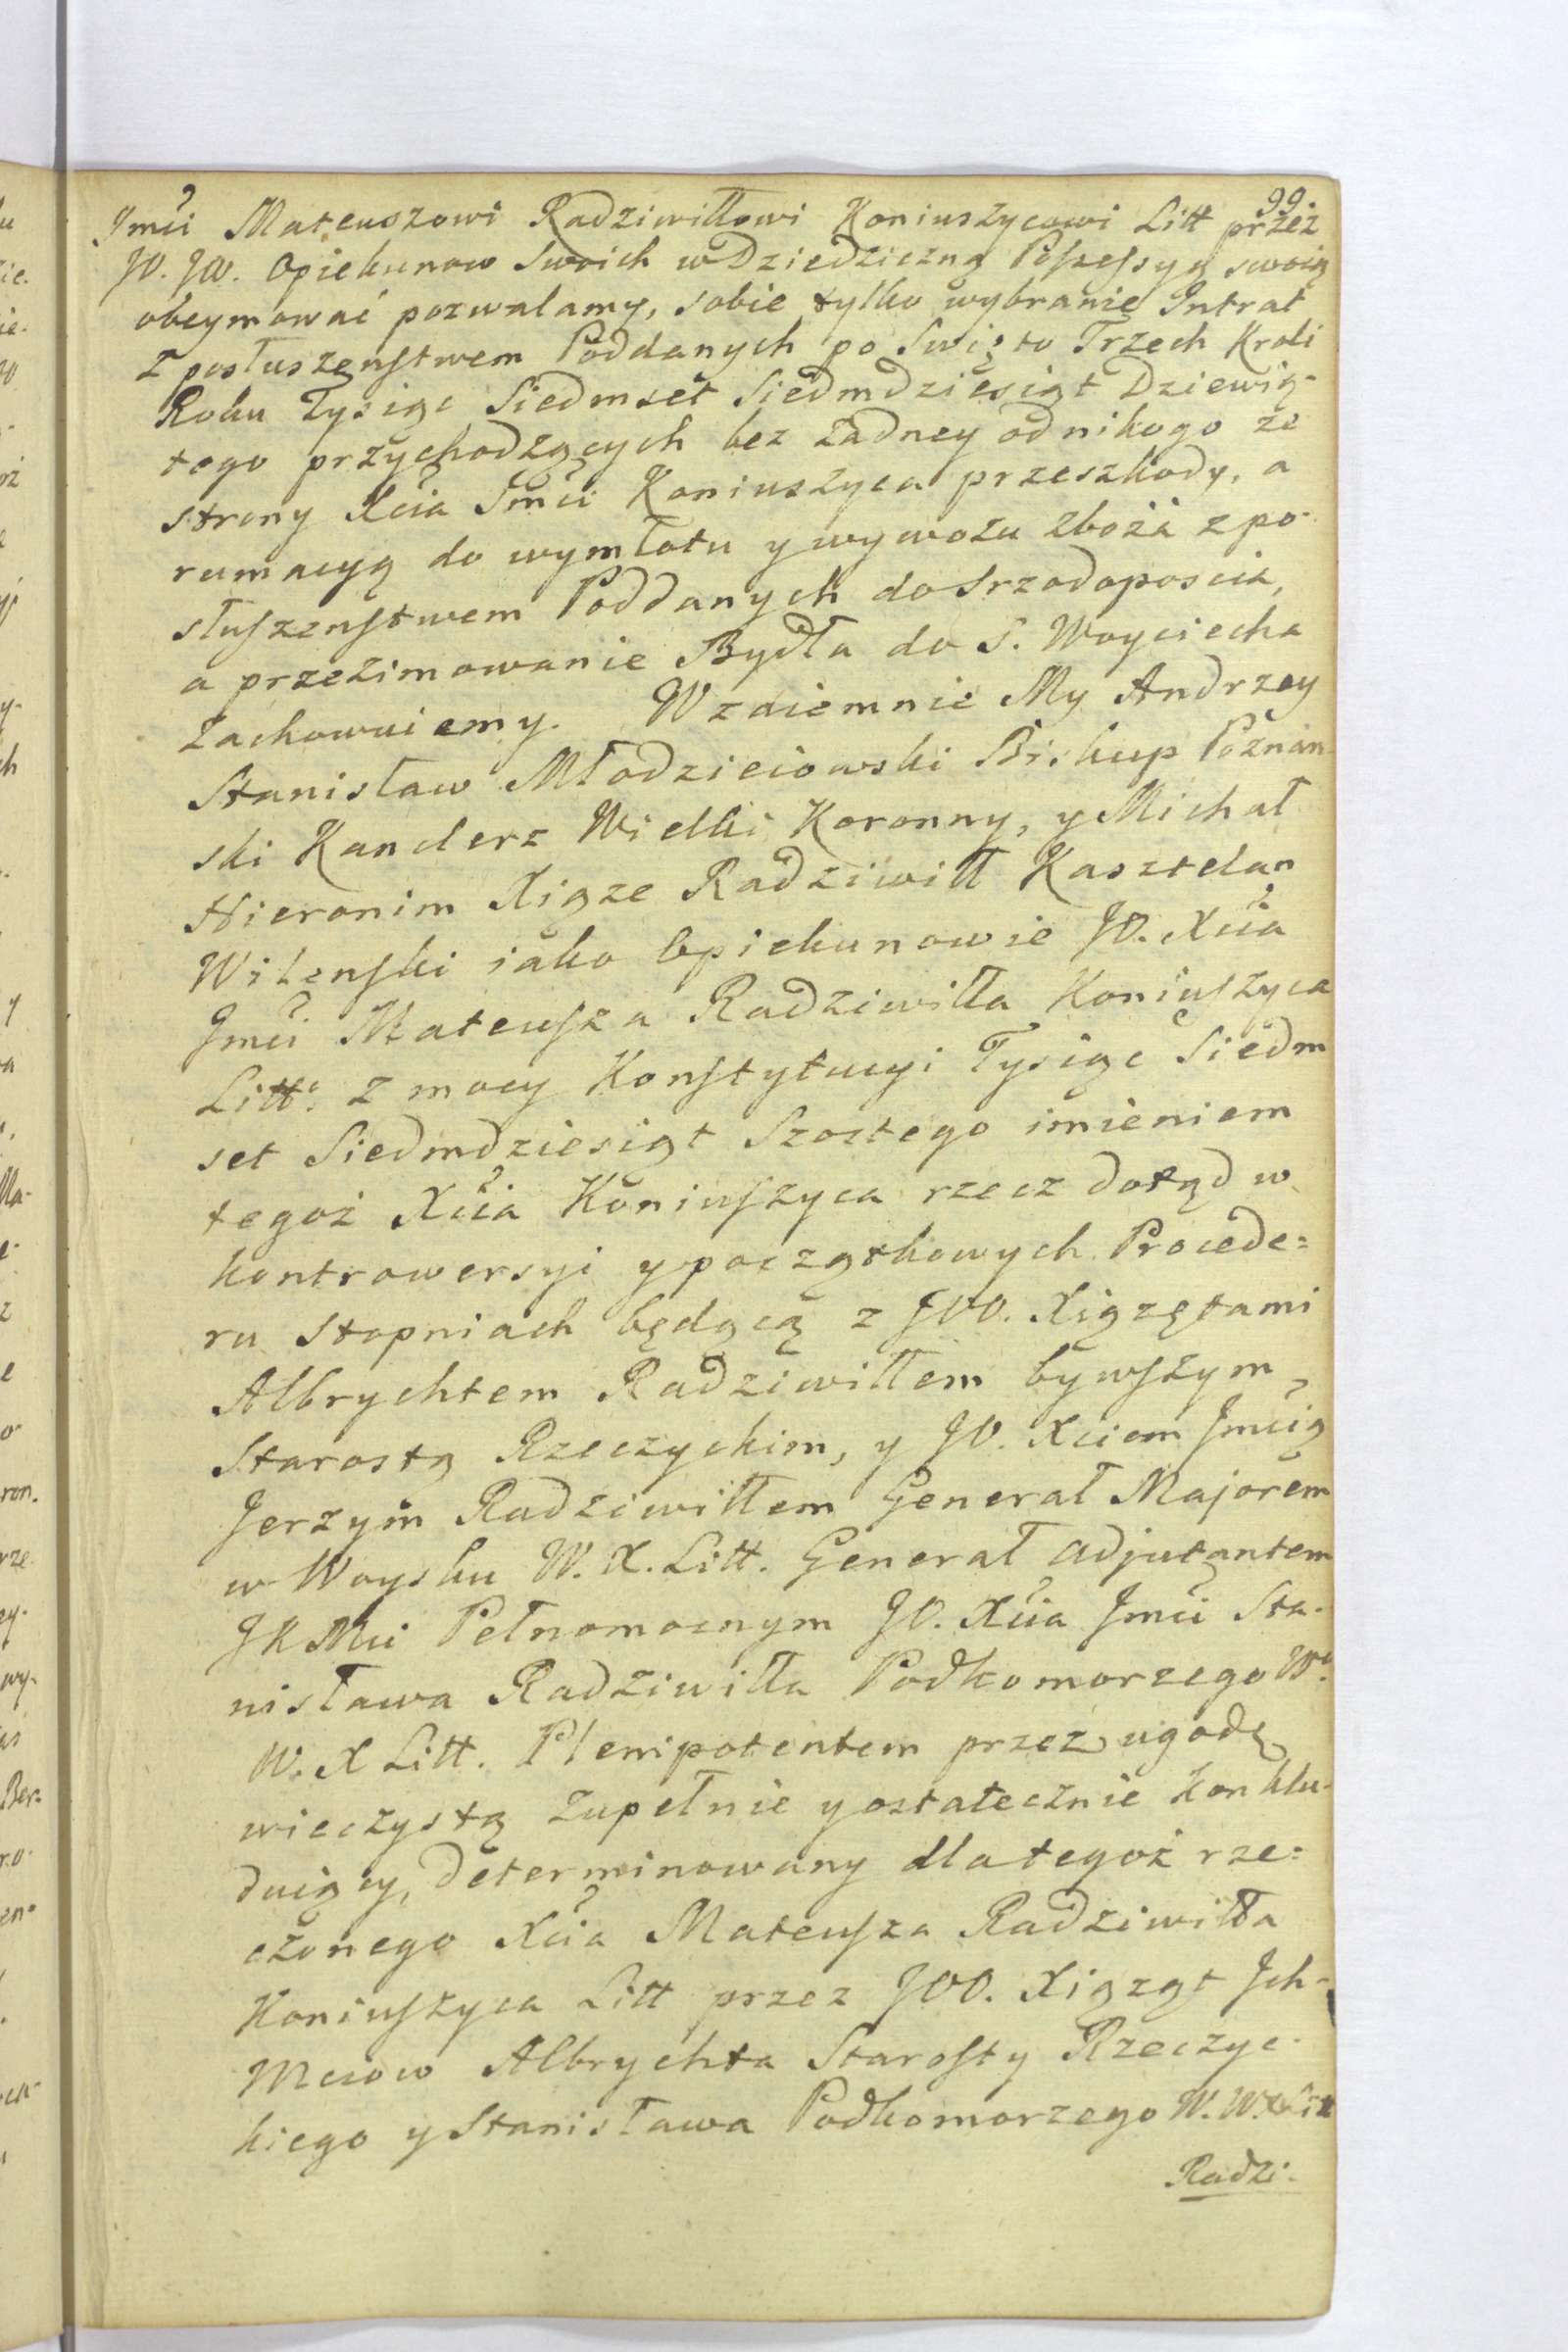 99.
Jmci Mateuszowi Radziwiłłowi Koniuszycowi Litt przez
JO. JW. Opiekunow Swoich w Dziedziczną Poſseſsyą swoią
obeymować pozwalamy, sobie tylko wybranie Intrat
z posłuszenſtwem Poddanych po Swięto Trzech Kroli
Roku Tysiąc Siedmset Siedmdziesiąt Dziewią-
tego przychodzących bez żadney od nikogo ze
strony Xcia Jmci Koniuszyca przeszkody, a
rumacyą do wymłotu y wywozu zboża z po-
słuſzenſtwem Poddanych do Srzodoposcia,
a przezimowanie Bydła do S. Woyciecha
Zachowuiemy. Wzaiemnie My Andrzey
Stanisław Młodzieiowski Biskup Poznan-
ski Kanclerz Wielki Koronny, y Michał
Hieronim Xiąze Radziwiłł Kasztelan
Wilenſki iako Opiekunowie JO. Xcia
Jmci Mateuſza Radziwiłła Koniuſzyca
Litt: z mocy Konſtytucyi Tysiąc Siedm
set Siedmdziesiąt Szostego imieniem
tegoż Xcia Koniuſzyca rzecz dotąd w
kontrowersyi y początkowych Procede=
ru stopniach będącą z JOO. Xiązętami
Albrychtem Radziwiłłem bywſzym
Starostą Rzeczyckim, y JO. Xciem Jmcią
Jerzym Radziwiłłem Generał Majorem
w Woysku W. X. Litt. Generał Adjutantem
JKMci Pełnomocnym JO. Xcia Jmci Sta-
nisława Radziwiłła Podkomorzego W:
W. X Litt. Plenipotentem przez ugodę
wieczystą Zupełnie y ostatecznie konklu-
duiący, determinowany dla tegoż rze=
czonego Xcia Mateuſza Radziwiłła
Koniuſzyca Litt przez JOO. Xiąząt Jch-
Mciow Albrychta Staroſty Rzeczyc-
kiego y Stanisława Podkomorzego W. W. X Litt
Radzi-